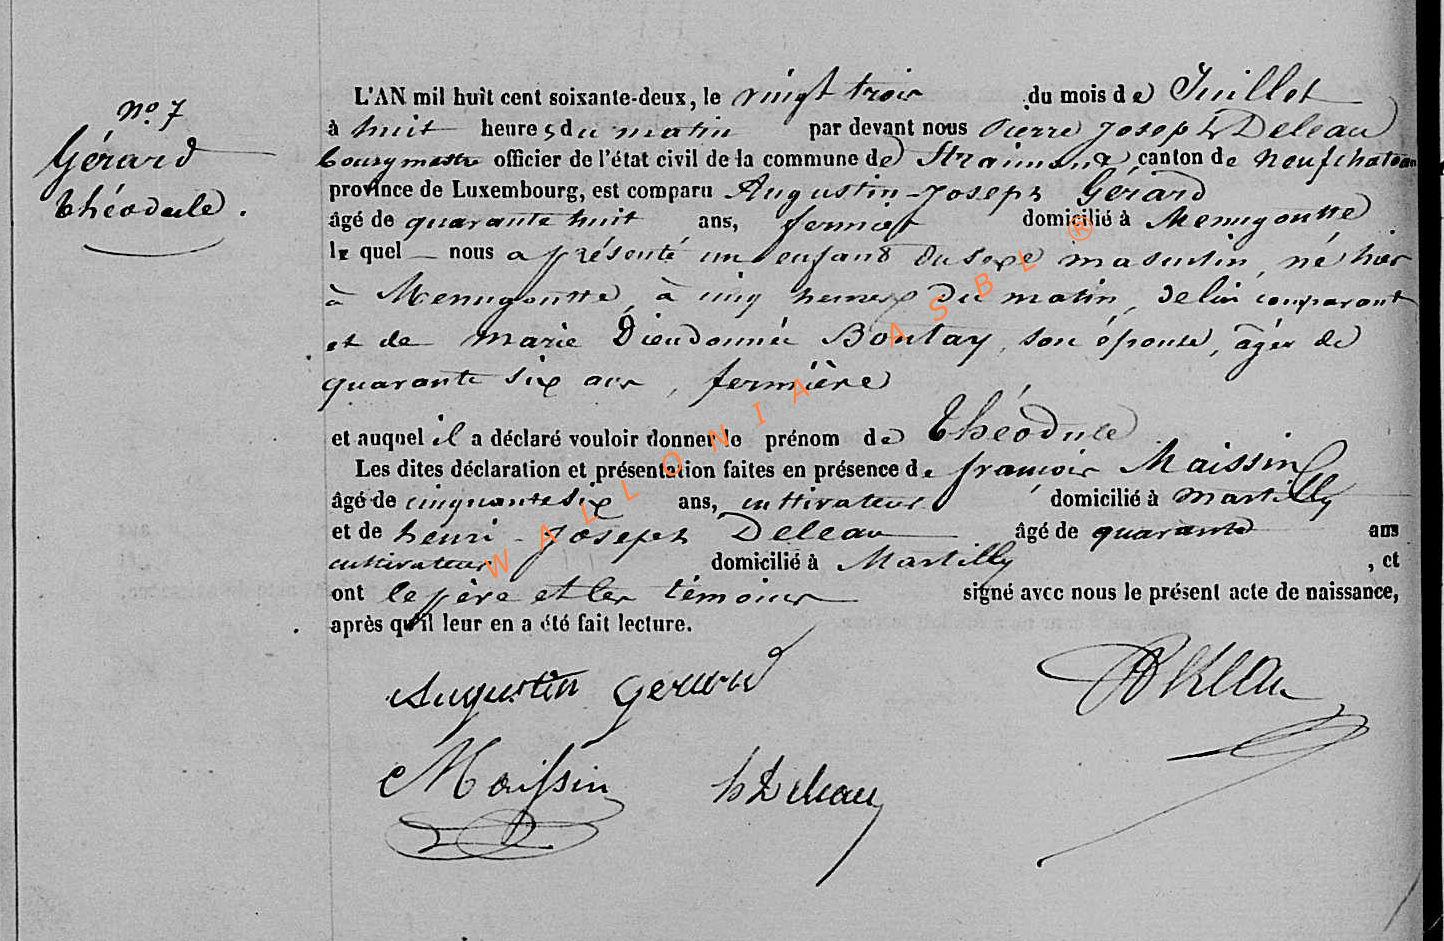 n.o 7
Gérard
théodule.
L'AN mil huit cent soixante-deux, le vingt trois du mois de Juillet
à huit heures du matin par devant nous Pierre Joseph Deleau
bourgmestre officier de l'état civil de la commune de Straimont canton de Neufchateau
province de Luxembourg, est comparu Augustin-Joseph Gérard
âgé de quarante huit ans, fermier domicilié à Menugoutte
le quel nous a présenté un enfant du sexe masculin, né hier
à Menugoutte, à cinq heures du matin, de lui comparant
et de Marie Dieudonnée Bontay, son épouse, âgée de
quarante six ans, fermière
et auquel il a déclaré vouloir donner le prénom de théodule
Les dites déclaration et présentation faites en présence de françois Maissin
âgé de cinquante six ans, cultivateur domicilié à Martilly
et de henri-Joseph Deleau âgé de quarante ans
cultivateur domicilié à Martilly, et
ont le père et les témoins signé avec nous le présent acte de naissance,
après qu'il leur en a été fait lecture.
Augustin Gerard
Deleau
Maissin hDeleau
WALLONIA ASBL ®